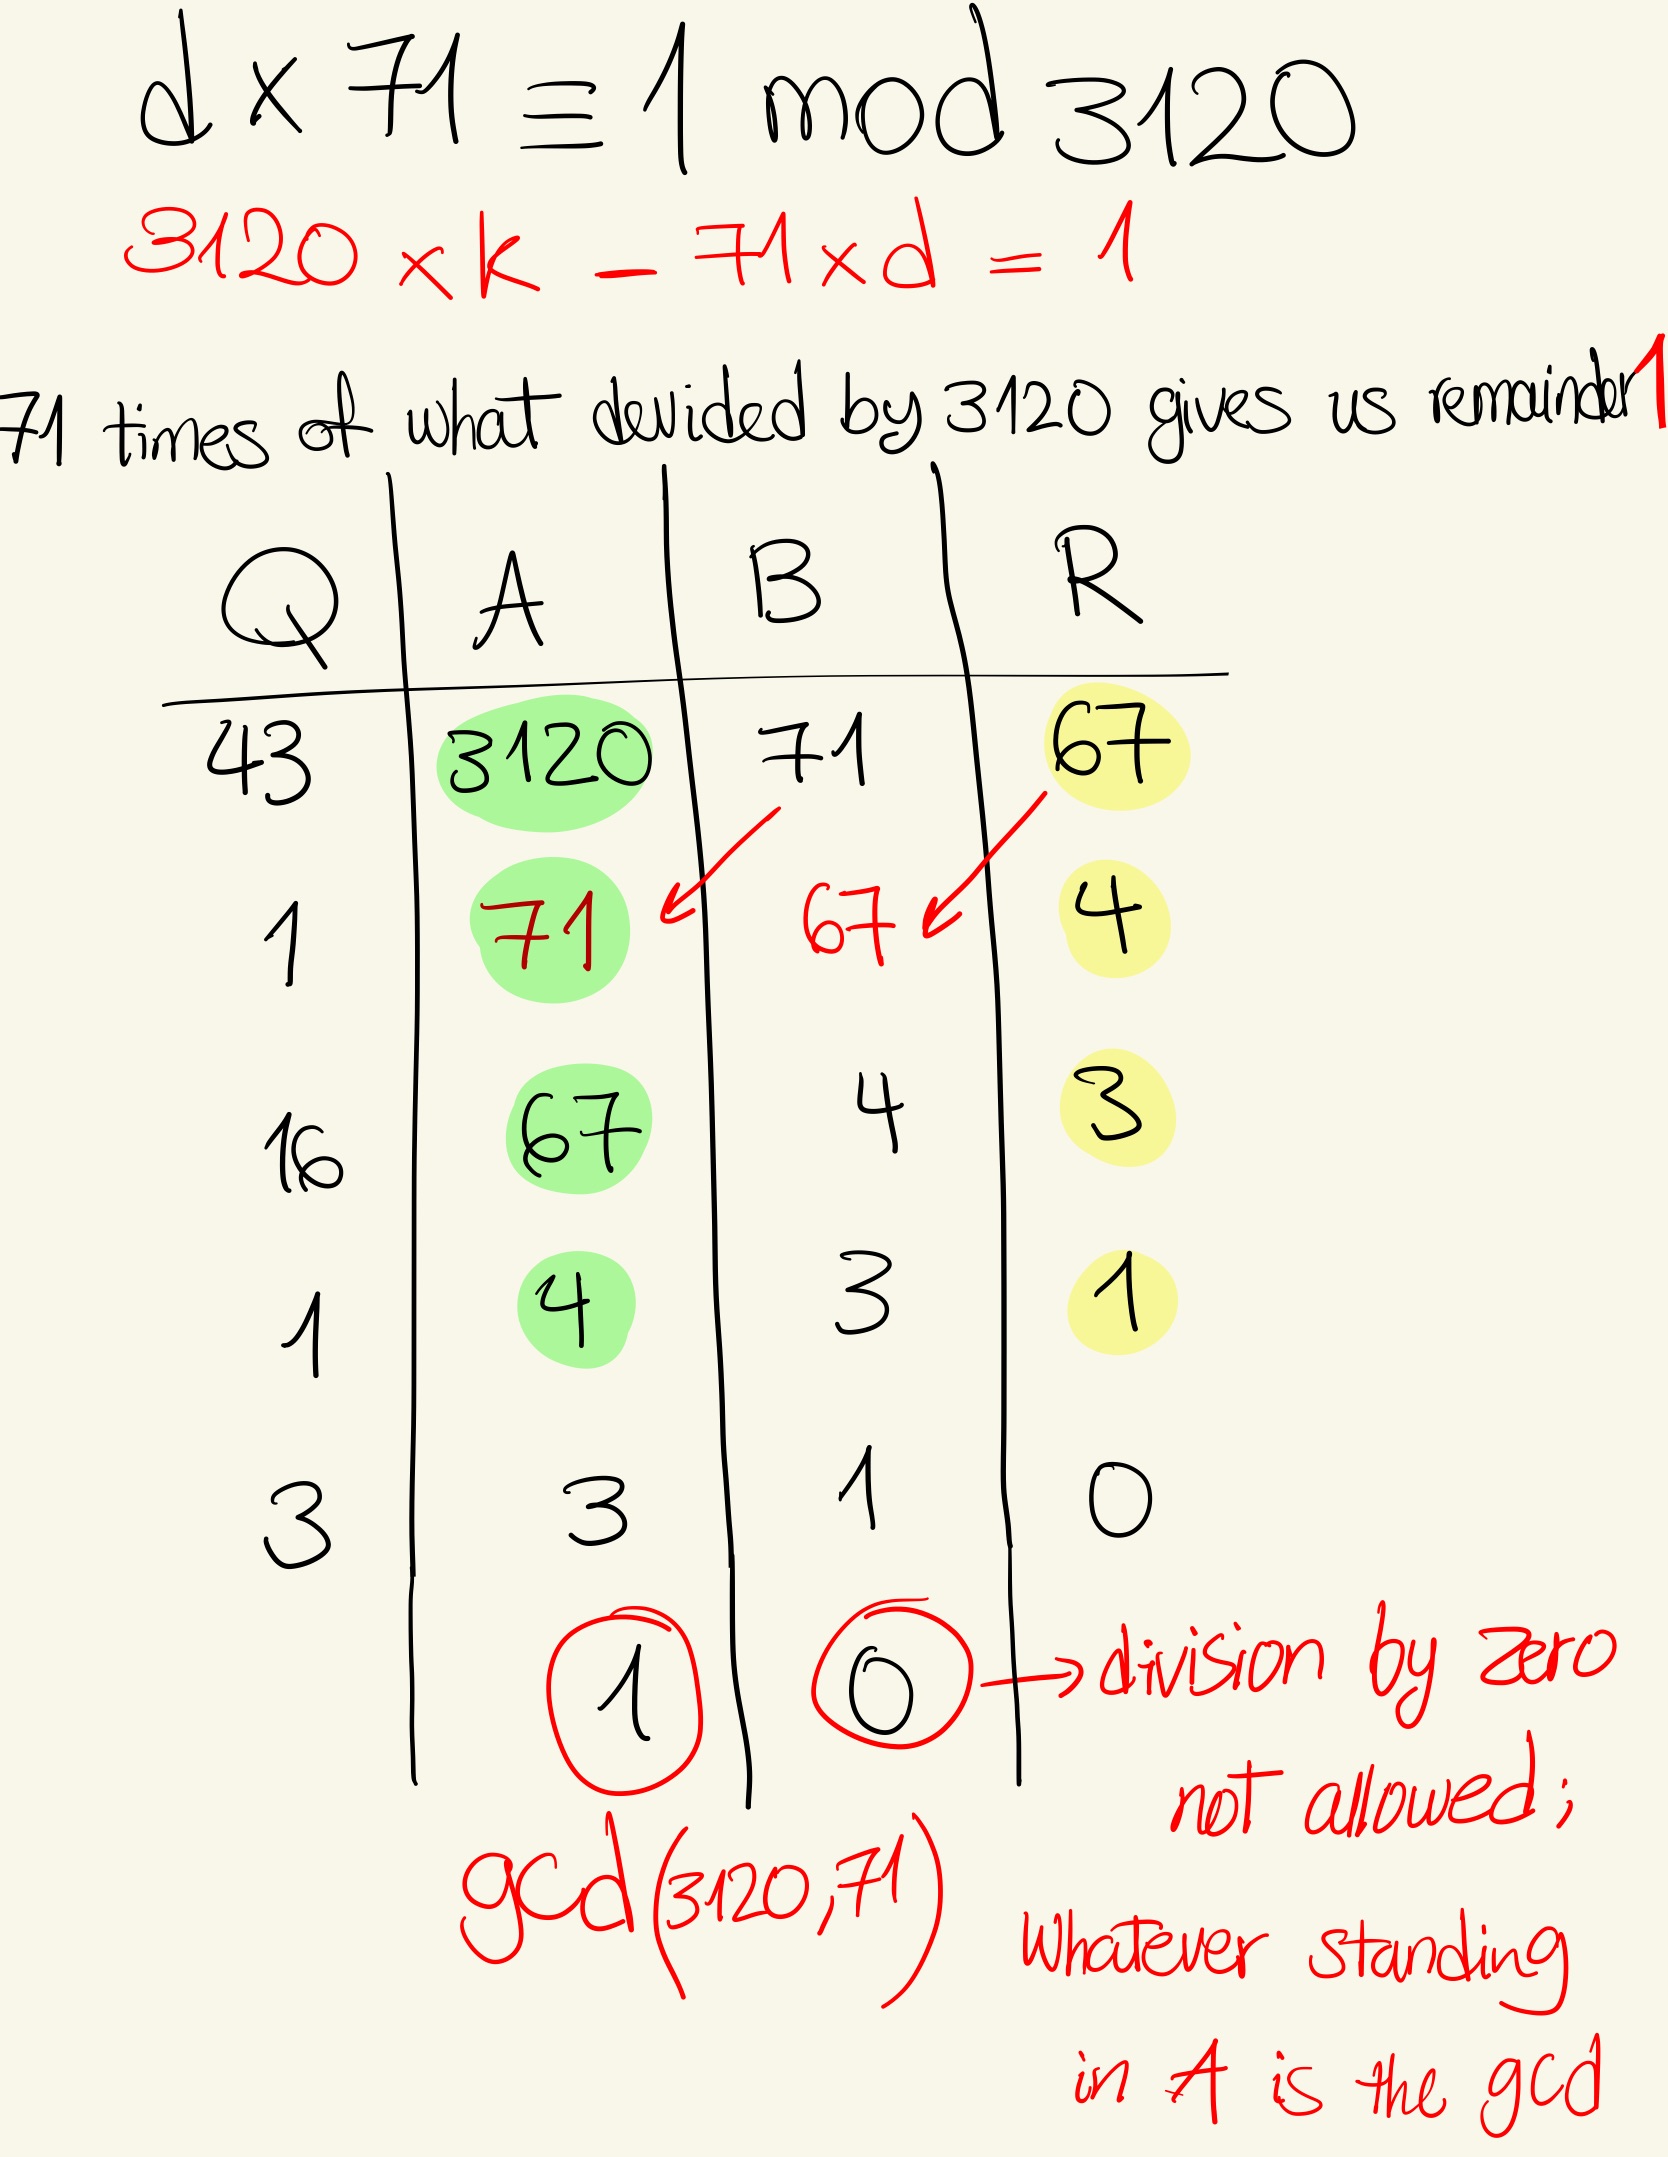 d × 71 ≡ 1 mod 3120
3120 × k − 71 × d = 1
71 times of what devided by 3120 gives us remainder 1
Q A B R
43 3120 71 67
1 71 67 4
16 67 4 3
1 4 3 1
3 3 1 0
1 0 → division by zero
not allowed;
gcd(3120,71)
Whatever standing
in A is the gcd